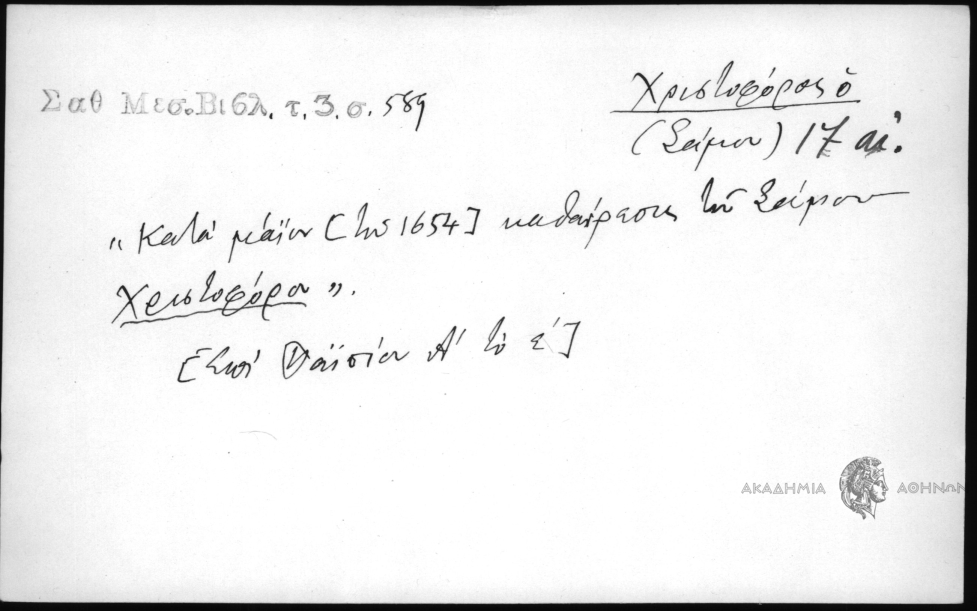 Σαθ Μεσ.Βιβλ. τ. 3. σ. 589
Χριστοφόρος ὁ
(Σάμου) 17 αἰ.
„Κατά μάϊον [τοῦ 1654] καθαίρεσις τοῦ Σάμου
Χριστοφόρου”.
[Ἐπί Παϊσίου Α' τό ε']
ΑΚΑΔΗΜΙΑ ΑΘΗΝΩΝ